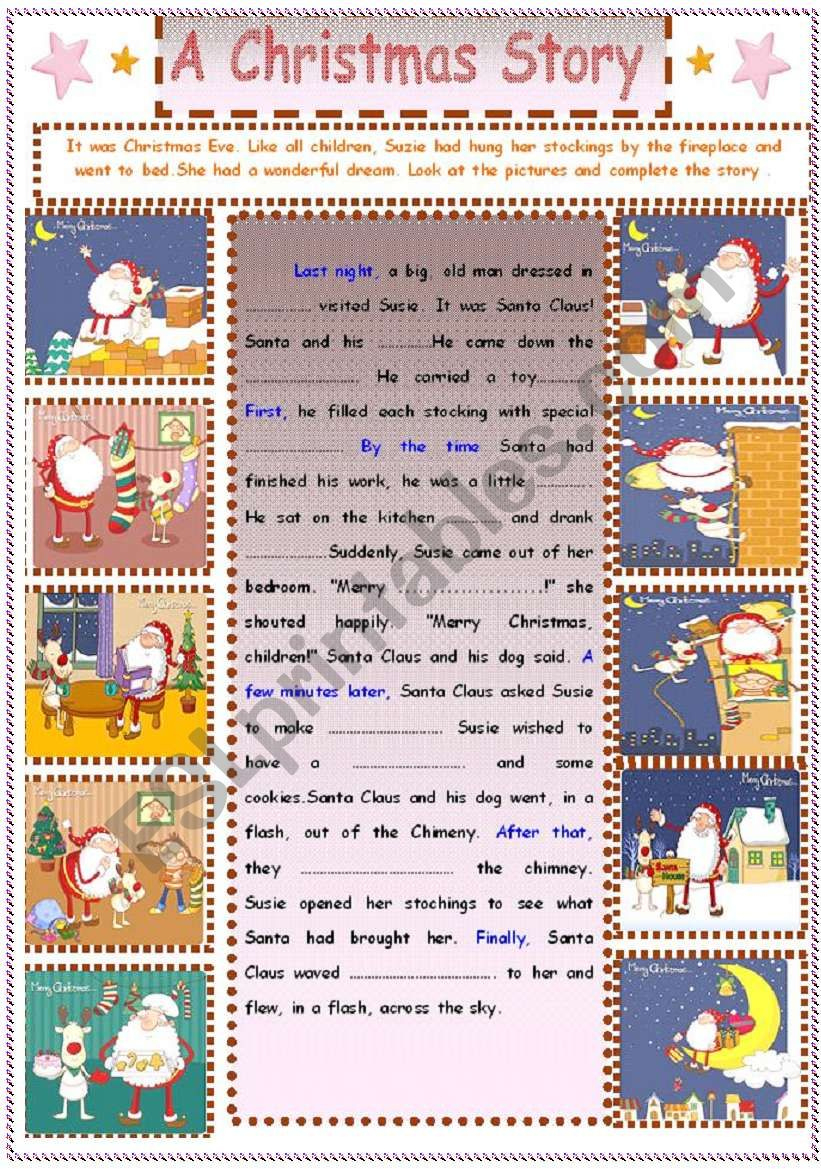 A Christmas Story
It was Christmas Eve. Like all children, Suzie had hung her stockings by the fireplace and
went to bed.She had a wonderful dream. Look at the pictures and complete the story .
Merry Christmas...
Merry Christmas...
Merry Christmas...
Merry Christmas...
Merry Christmas...
Last night, a big old man dressed in
................ visited Susie. It was Santa Claus!
Santa and his .............He came down the
........................... He carried a toy............
First, he filled each stocking with special
........................ By the time Santa had
finished his work, he was a little .............
He sat on the kitchen .............. and drank
....................Suddenly, Susie came out of her
bedroom. "Merry ......................!" she
shouted happily. "Merry Christmas,
children!" Santa Claus and his dog said. A
few minutes later, Santa Claus asked Susie
to make ............................ Susie wished to
have a ............................ and some
cookies.Santa Claus and his dog went, in a
flash, out of the Chimeny. After that,
they .................................... the chimney.
Susie opened her stochings to see what
Santa had brought her. Finally, Santa
Claus waved ................................... to her and
flew, in a flash, across the sky.
Merry Christmas...
Merry Christmas...
Merry Christmas...
Merry Christmas...
Santa
House
Merry Christmas...
ESLprintables.com